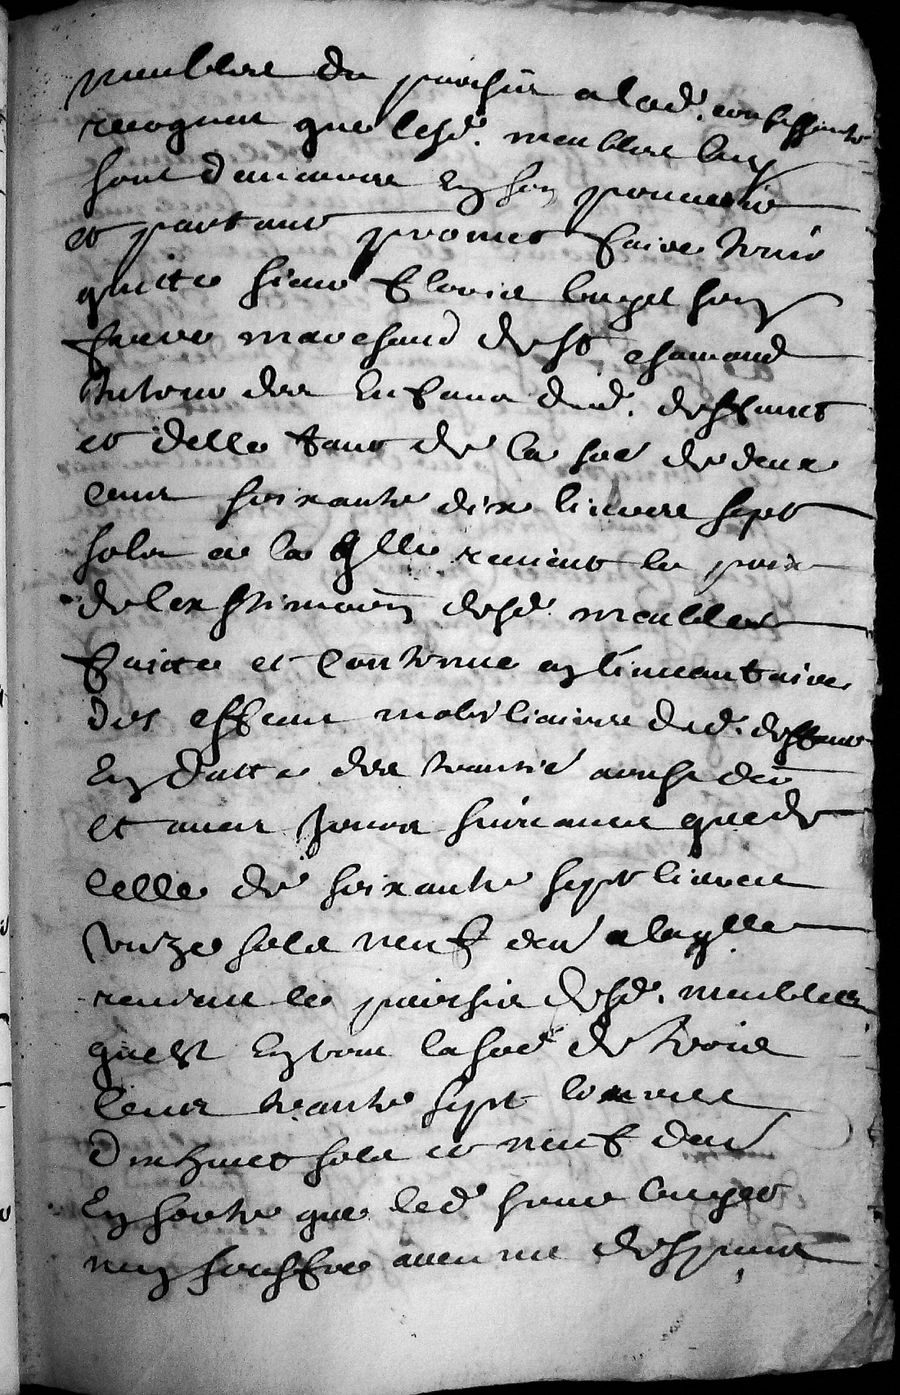 meubles du parisis a lad. confessante
recognu que lesd. meubles luy
sont demeures en son pouvoir
et partant promet faire tenir
quitte sieur Floris
frere marchand de St chamond
tuteur des enfans dud. deffunt
et d'elle tant de la so͞e de deux
cens soixante dix livres sept
solz a la qlle revient le prix
de lexstimaon desd. meubles
faitte et contenue en linventaire
des effects mobiliaires dud. deffunt
en datte des trante
et aues jours suivants que de
celle de soixante sept livres
unze solz neuf den a laqlle
revient le parisis desd. meubles
quest en tout la so͞e de trois
cens trante sept livres
dixhuict solz et neuf den
en sorte que led. sieur
ny souffre aucune despance